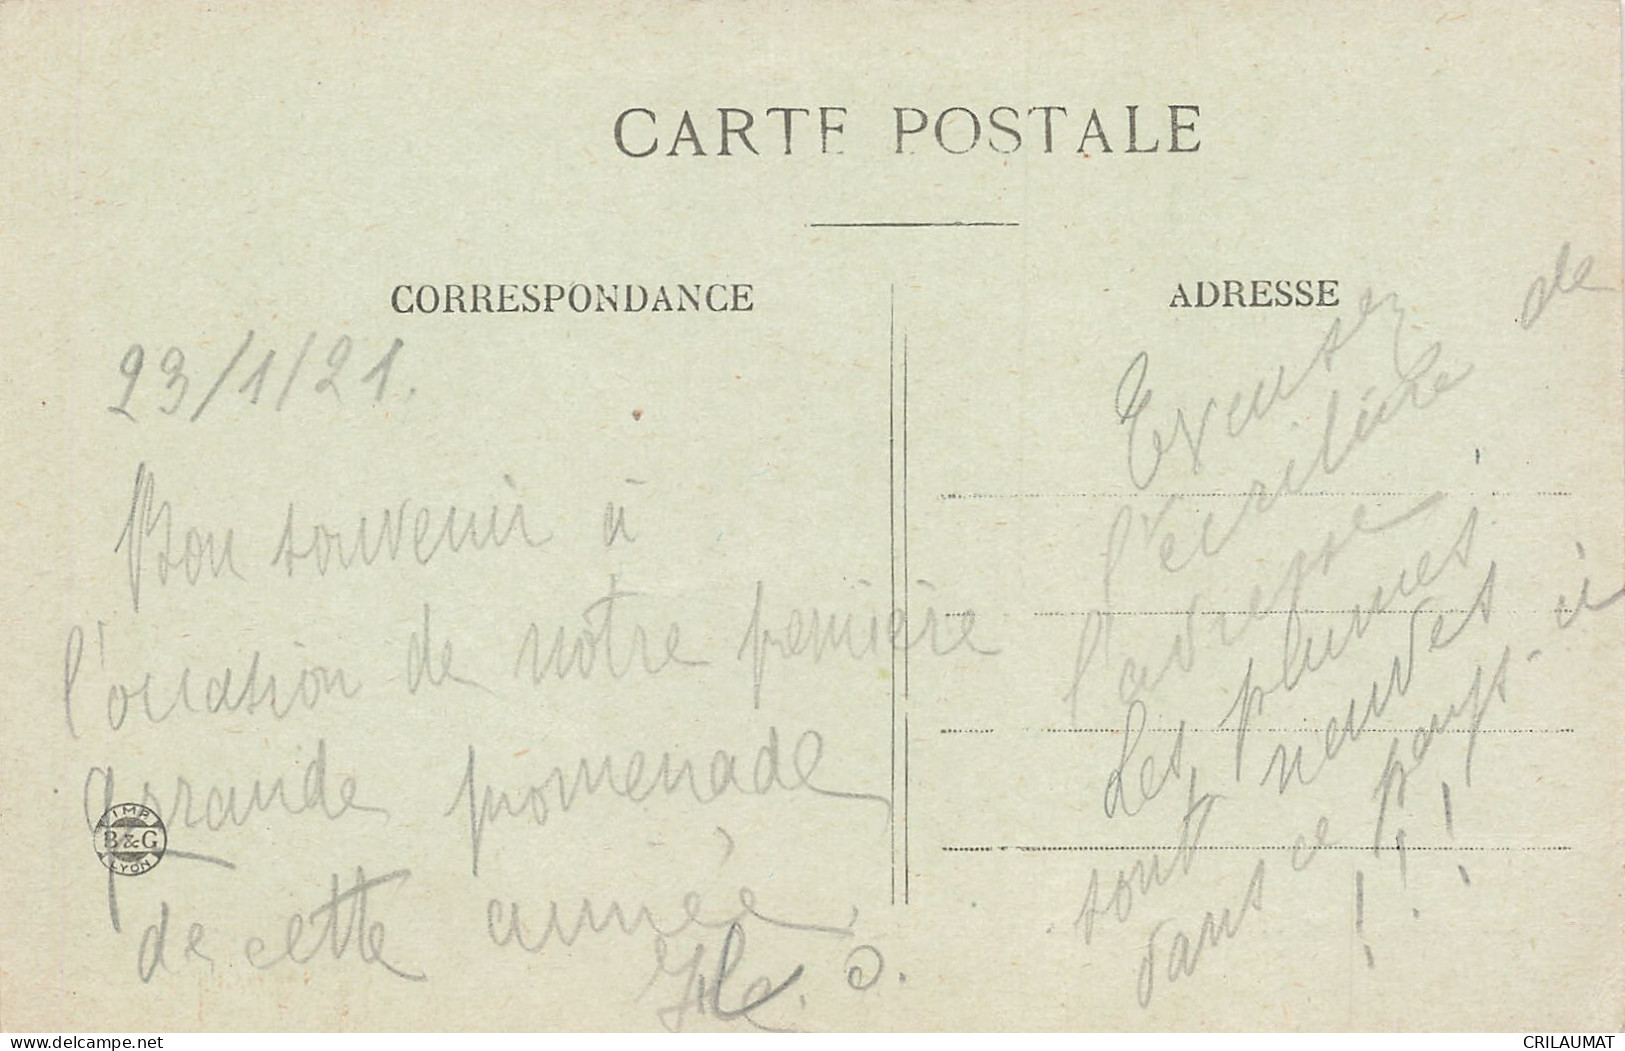 CARTE POSTALE
CORRESPONDANCE
ADRESSE
23/1/21.
Bon souvenir à
l'occasion de notre pemière
grande promenade
de cette année.
Excusez
l'écriture de
l'adresse.
Les plumes
sont neuves
dans ce pays-ci
! ! !
IMP.
B&G
LYON
www.delcampe.net
CRILAUMAT